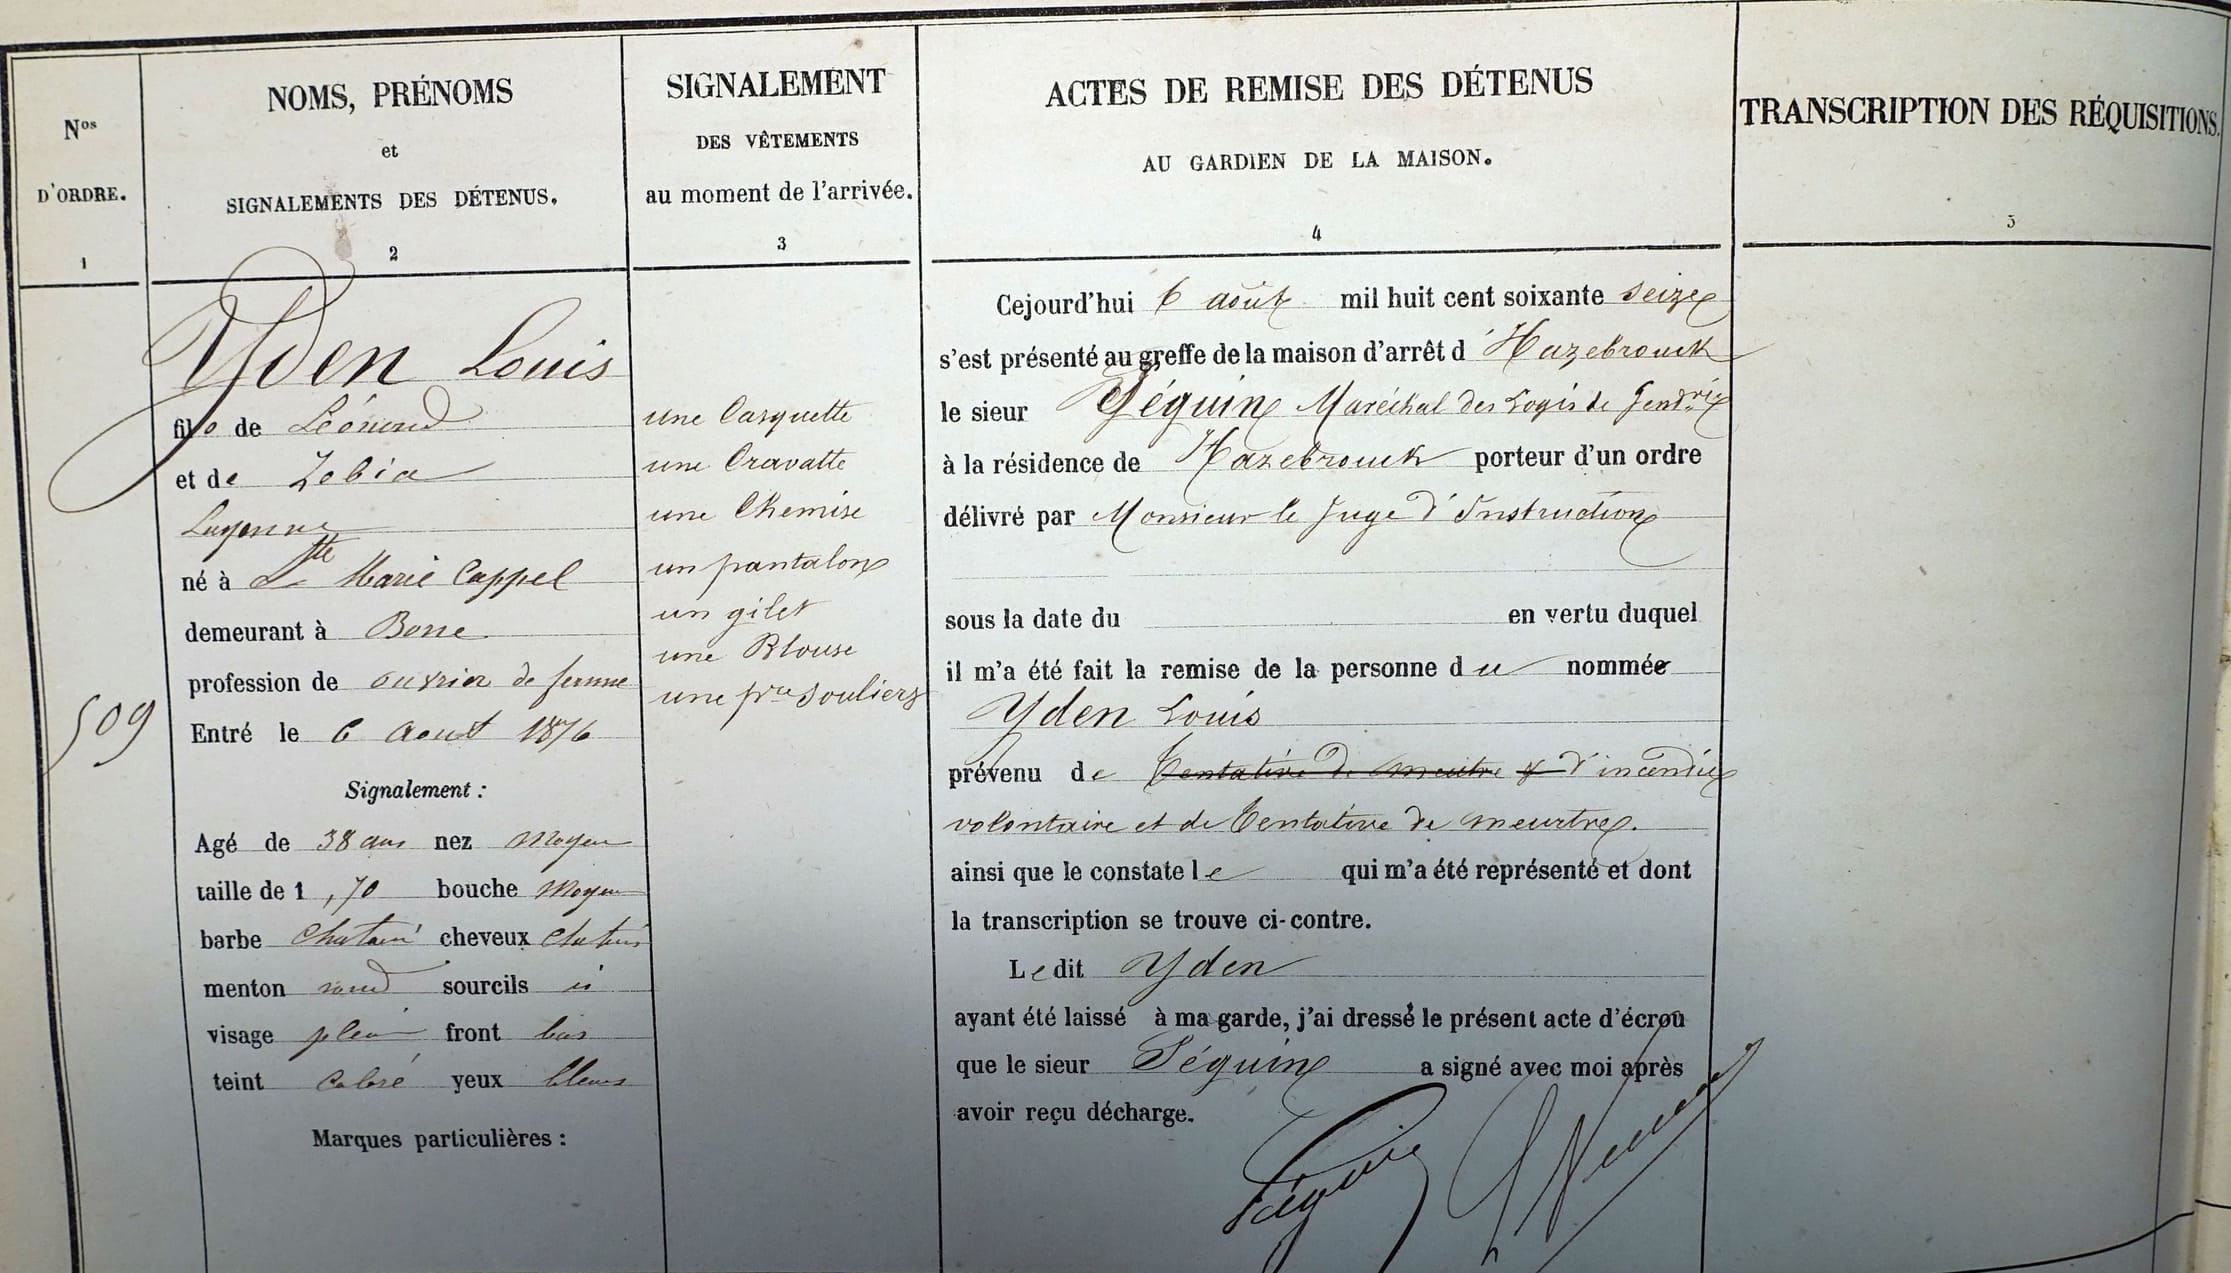 Nos
D'ORDRE.
1
NOMS, PRÉNOMS
et
SIGNALEMENTS DES DÉTENUS.
2
SIGNALEMENT
DES VÊTEMENTS
au moment de l'arrivée.
3
ACTES DE REMISE DES DÉTENUS
AU GARDIEN DE LA MAISON.
4
TRANSCRIPTION DES RÉQUISITIONS.
5
509
Yden Louis
fils de Léonard
et de Zobia
né à Ste Marie Cappel
demeurant à Borre
profession de ouvrier de ferme
Entré le 6 Aout 1876
Signalement :
Agé de 38 ans nez moyen
taille de 1 ,70 bouche moyen
barbe Chatain cheveux chatains
menton rond sourcils id
visage plein front bas
teint Coloré yeux bleus
Marques particulières :
une Casquette
une Cravatte
une Chemise
un pantalon
un gilet
une Blouse
une pre souliers
Cejourd'hui 6 août mil huit cent soixante seize
s'est présenté au greffe de la maison d'arrêt d'Hazebrouck
le sieur Séguin Maréchal des Logis de Gendrie
à la résidence de Hazebrouck porteur d'un ordre
délivré par Monsieur le Juge d'Instruction
sous la date du en vertu duquel
il m'a été fait la remise de la personne du nommé
Yden Louis
prévenu de tentative de meutre & d'incendie
volontaire et de tentative de meurtre.
ainsi que le constate le qui m'a été représenté et dont
la transcription se trouve ci-contre.
Ledit Yden
ayant été laissé à ma garde, j'ai dressé le présent acte d'écrou
que le sieur Séguin a signé avec moi après
avoir reçu décharge.
Séguin